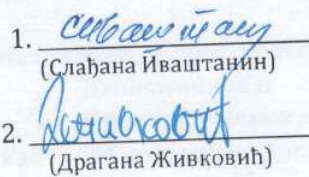 1.
(Слађана Иваштанин)
2.
(Драгана Живковић)